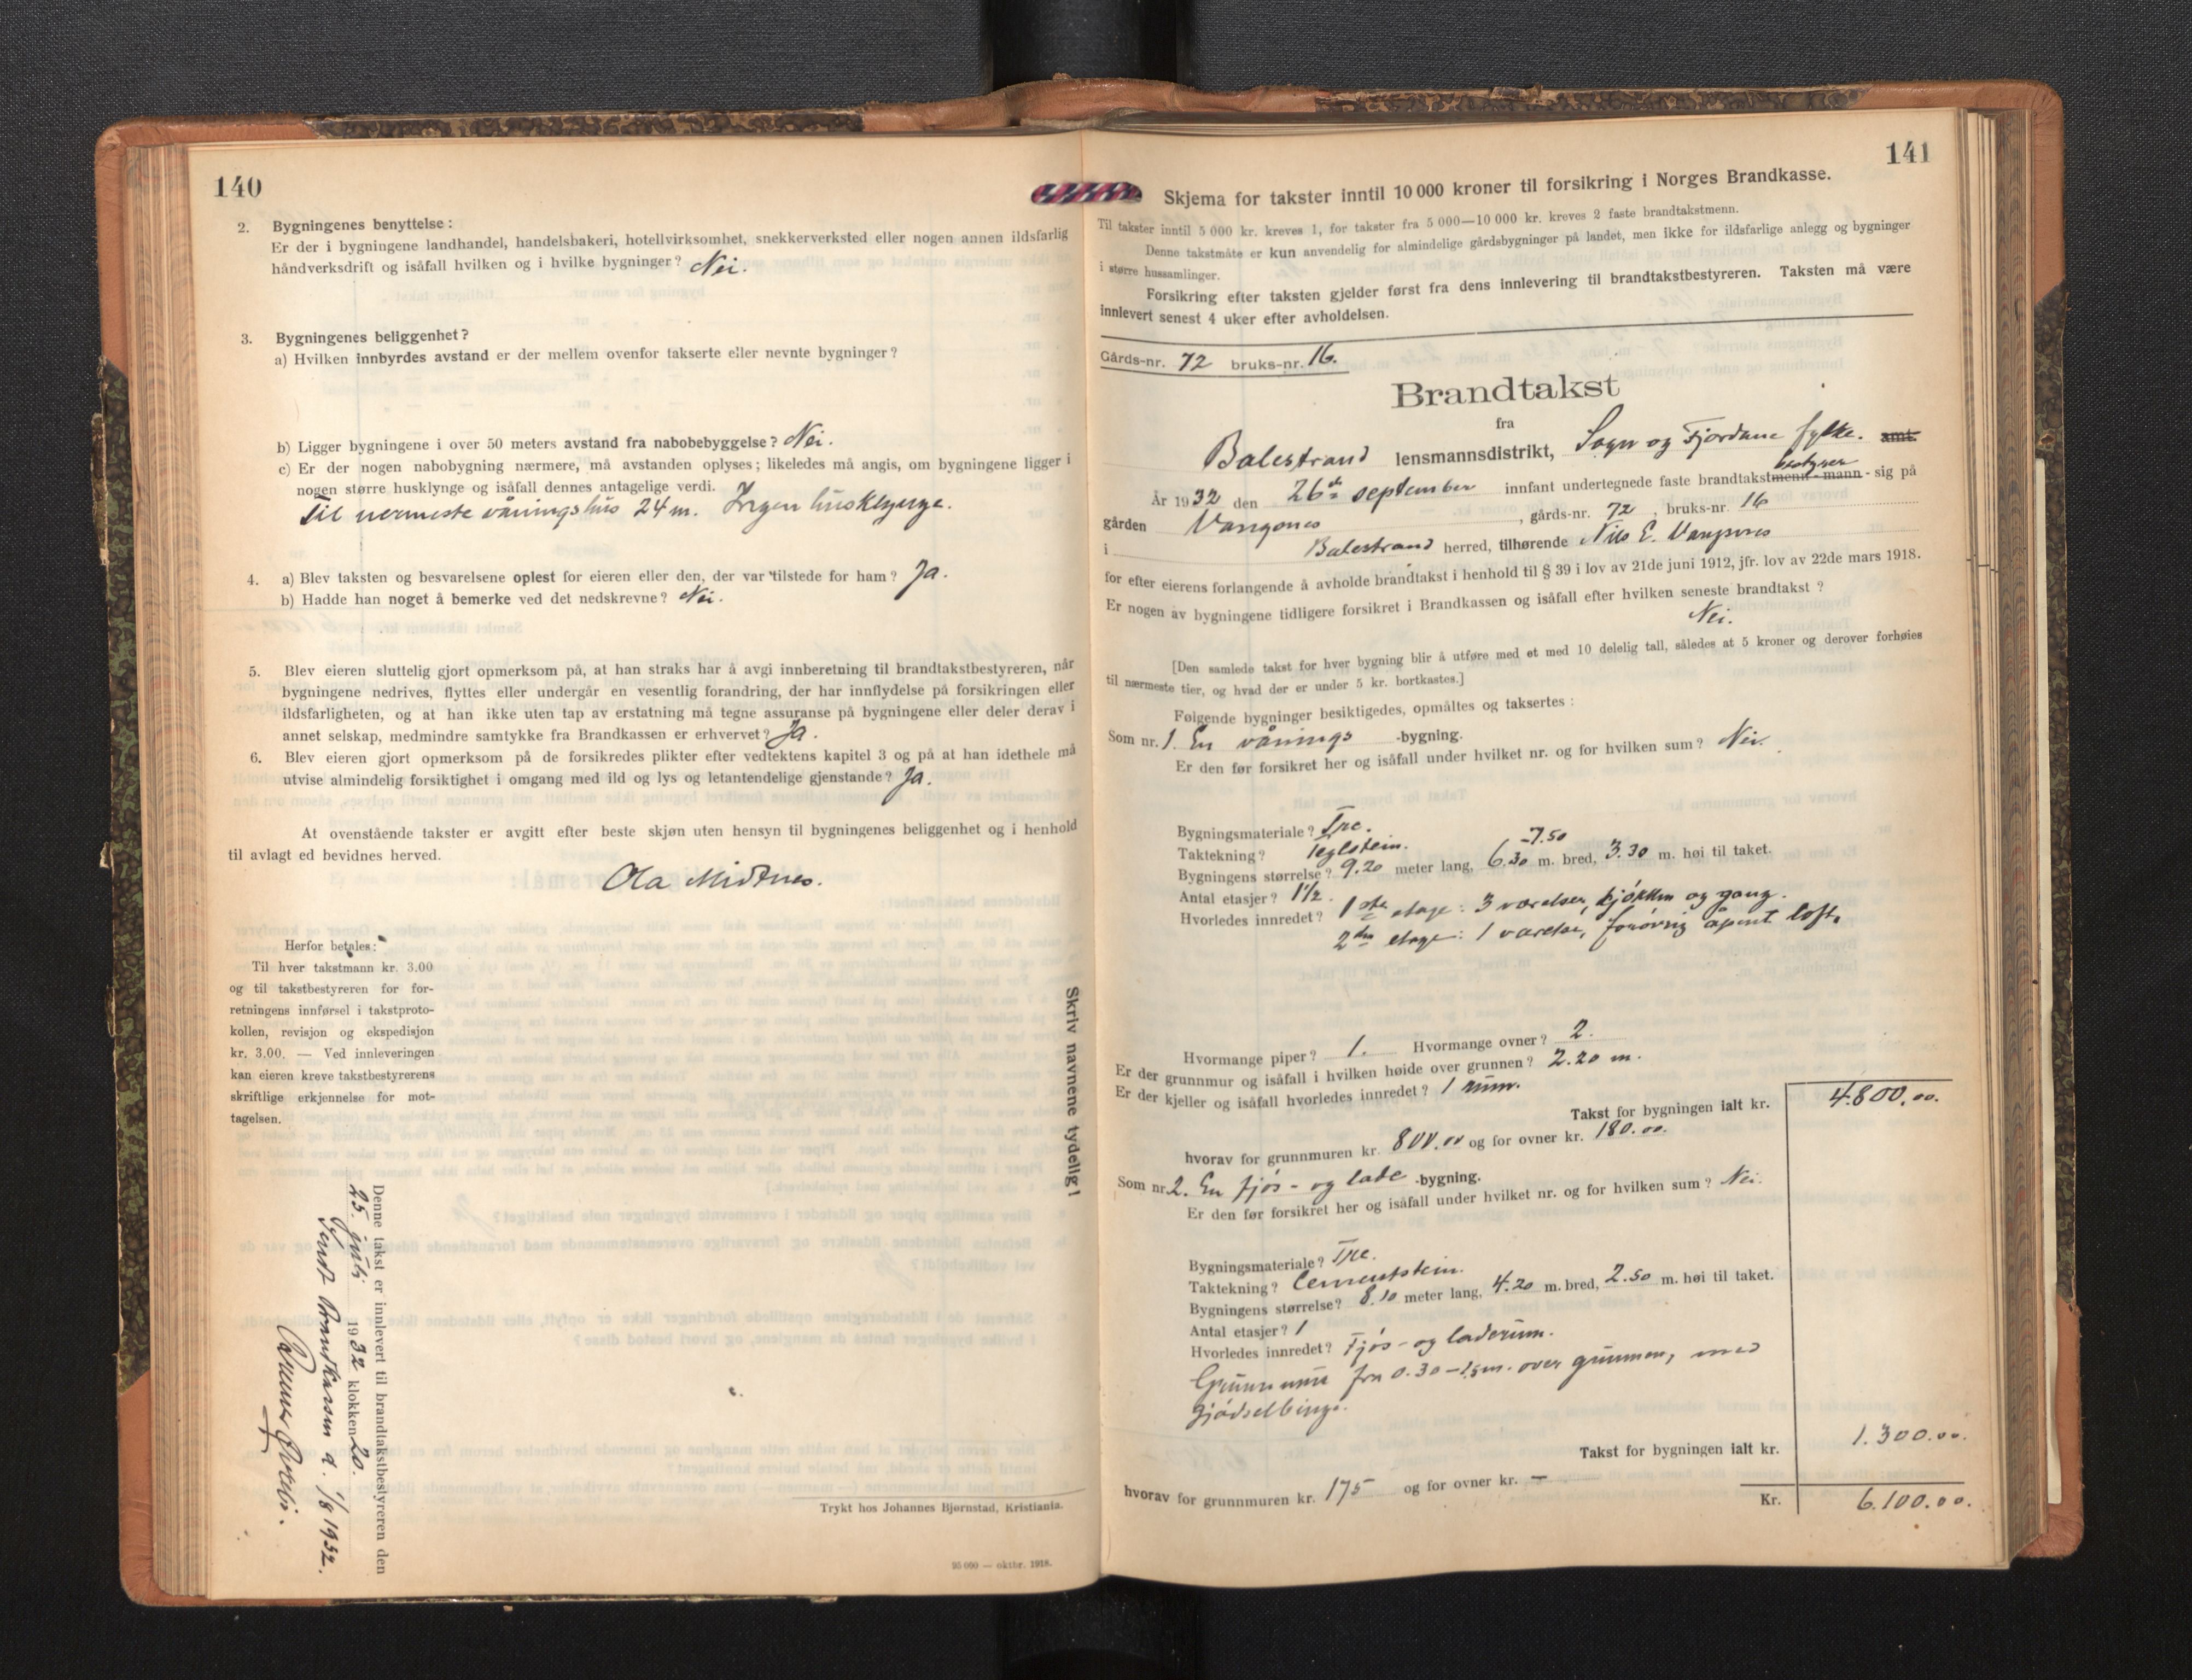 140
2. Bygningenes benyttelse :
Er der i bygningene landhandel, handelsbakeri, hotellvirksomhet, snekkerverksted eller nogen annen ildsfarlig
håndverksdrift og isåfall hvilken og i hvilke bygninger? Nei.
3. Bygningenes beliggenhet?
a) Hvilken innbyrdes avstand er der mellem ovenfor takserte eller nevnte bygninger?
b) Ligger bygningene i over 50 meters avstand fra nabobebyggelse? Nei.
c) Er der nogen nabobygning nærmere, må avstanden oplyses; likeledes må angis, om bygningene ligger i
nogen større husklynge og isåfall dennes antagelige verdi.
Til nermeste våningshus 24 m. Ingen husklynge.
4. a) Blev taksten og besvarelsene oplest for eieren eller den, der var tilstede for ham? Ja.
b) Hadde han noget å bemerke ved det nedskrevne? Nei.
5. Blev eieren sluttelig gjort opmerksom på, at han straks har å avgi innberetning til brandtakstbestyreren, når
bygningene nedrives, flyttes eller undergår en vesentlig forandring, der har innflydelse på forsikringen eller
ildsfarligheten, og at han ikke uten tap av erstatning må tegne assuranse på bygningene eller deler derav i
annet selskap, medmindre samtykke fra Brandkassen er erhvervet? Ja.
6. Blev eieren gjort opmerksom på de forsikredes plikter efter vedtektens kapitel 3 og på at han idethele må
utvise almindelig forsiktighet i omgang med ild og lys og letantendelige gjenstande? Ja.
At ovenstående takster er avgitt efter beste skjøn uten hensyn til bygningenes beliggenhet og i henhold
til avlagt ed bevidnes herved.
Ola Midtnes.
Herfor betales:
Til hver takstmann kr. 3.00
og til takstbestyreren for for-
retningens innførsel i takstproto-
kollen, revisjon og ekspedisjon
kr. 3.00. — Ved innleveringen
kan eieren kreve takstbestyrerens
skriftlige erkjennelse for mot-
tagelsen.
Skriv navnene tydelig!
Denne takst er innlevert til brandtakstbestyreren den
25. juli 1932 klokken 20.
Sendt Brandkassen d. 1/8 1932.
Trykt hos Johannes Bjørnstad, Kristiania.
95 000 — oktbr. 1918.
141
Skjema for takster inntil 10 000 kroner til forsikring i Norges Brandkasse.
Til takster inntil 5 000 kr. kreves 1, for takster fra 5 000—10 000 kr. kreves 2 faste brandtakstmenn.
Denne takstmåte er kun anvendelig for almindelige gårdsbygninger på landet, men ikke for ildsfarlige anlegg og bygninger
i større hussamlinger.
Forsikring efter taksten gjelder først fra dens innlevering til brandtakstbestyreren. Taksten må være
innlevert senest 4 uker efter avholdelsen.
Gårds-nr. 72 bruks-nr. 16.
Brandtakst
fra
Balestrand lensmannsdistrikt, Sogn og Fjordane fylke. amt.
bestyrer
År 1932 den 26de september innfant undertegnede faste brandtakstmenn - mann - sig på
gården Vangsnes, gårds-nr. 72, bruks-nr. 16
i Balestrand herred, tilhørende Nils E. Vangsnes
for efter eierens forlangende å avholde brandtakst i henhold til § 39 i lov av 21de juni 1912, jfr. lov av 22de mars 1918.
Er nogen av bygningene tidligere forsikret i Brandkassen og isåfall efter hvilken seneste brandtakst ?
Nei.
[Den samlede takst for hver bygning blir å utføre med et med 10 delelig tall, således at 5 kroner og derover forhøies
til nærmeste tier, og hvad der er under 5 kr. bortkastes.]
Følgende bygninger besiktigedes, opmåltes og taksertes :
Som nr. 1. En vånings -bygning.
Er den før forsikret her og isåfall under hvilket nr. og for hvilken sum? Nei.
Bygningsmateriale? Tre.
Taktekning? Teglstein.
-7.50
Bygningens størrelse? 9.20 meter lang, 6.30 m. bred, 3.30 m. høi til taket.
Antal etasjer? 1½.
Hvorledes innredet? 1ste etage: 3 værelser, kjøkken og gang.
2den etage: 1 værelse, forøvrig åpent loft.
Hvormange piper? 1. Hvormange ovner? 2.
Er der grunnmur og isåfall i hvilken høide over grunnen? 2.20 m.
Er der kjeller og isåfall hvorledes innredet? 1 rum.
Takst for bygningen ialt kr. 4.800.00.
hvorav for grunnmuren kr. 800.00 og for ovner kr. 180.00.
Som nr. 2. En fjøs- og lade -bygning.
Er den før forsikret her og isåfall under hvilket nr. og for hvilken sum? Nei.
Bygningsmateriale? Tre.
Taktekning? Cementstein.
Bygningens størrelse? 8.10 meter lang, 4.20 m. bred, 2.50 m. høi til taket.
Antal etasjer? 1
Hvorledes innredet? Fjøs- og laderum.
Grunnmur fra 0.30 - 1,5 m. over grunnen, med
gjødselbinge.
Takst for bygningen ialt kr. 1.300.00.
hvorav for grunnmuren kr. 175 og for ovner kr. —
Kr. 6.100.00.